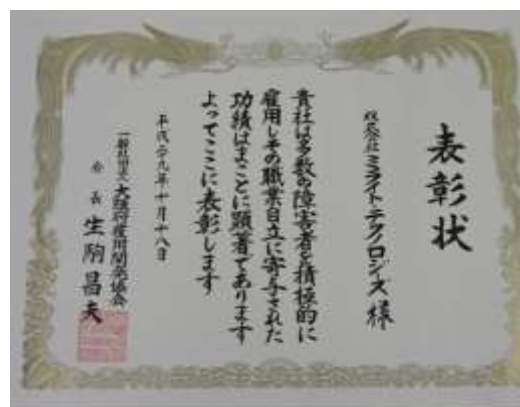 表彰状
株式会社ミライト・テクノロジーズ様
貴社は多数の障害者を積極的に
雇用しその職業自立に寄与された
功績はまことに顕著であります
よってここに表彰します
平成二九年十月十八日
一般社団法人大阪府雇用開発協会
会長 生駒昌夫